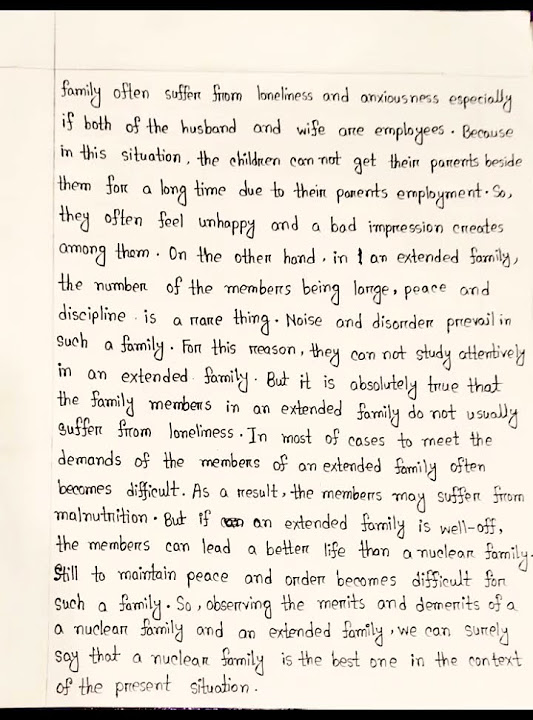 family often suffer from loneliness and anxiousness especially
if both of the husband and wife are employees. Because
in this situation, the children can not get their parents beside
them for a long time due to their parents employment. So,
they often feel unhappy and a bad impression creates
among them. On the other hand, in an extended family,
the number of the members being large, peace and
discipline is a rare thing. Noise and disorder prevail in
such a family. For this reason, they can not study attentively
in an extended family. But it is absolutely true that
the family members in an extended family do not usually
suffer from loneliness. In most of cases to meet the
demands of the members of an extended family often
becomes difficult. As a result, the members may suffer from
malnutrition. But if an extended family is well-off,
the members can lead a better life than a nuclear family.
Still to maintain peace and order becomes difficult for
such a family. So, observing the merits and demerits of a
a nuclear family and an extended family, we can surely
say that a nuclear family is the best one in the context
of the present situation.